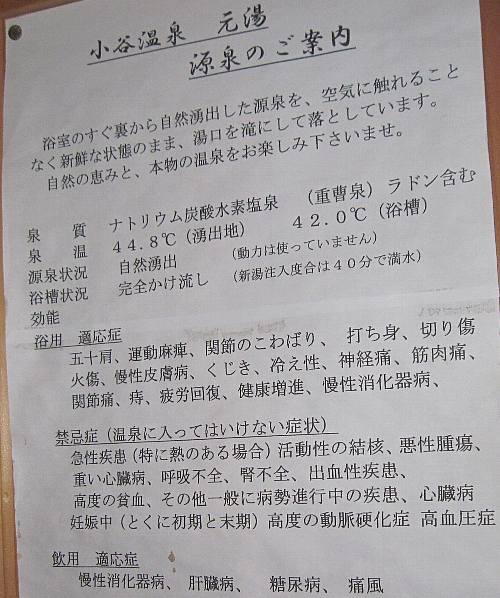 小谷温泉　元湯
源泉のご案内
浴室のすぐ裏から自然湧出した源泉を、空気に触れること
なく新鮮な状態のまま、湯口を滝にして落としています。
自然の恵みと、本物の温泉をお楽しみ下さいませ。
泉　質　ナトリウム炭酸水素塩泉　（重曹泉）ラドン含む
泉　温　４４．８℃（湧出地）　４２．０℃（浴槽）
源泉状況　自然湧出　（動力は使っていません）
浴槽状況　完全かけ流し　（新湯注入度合は４０分で満水）
効能
浴用　適応症
五十肩、運動麻痺、関節のこわばり、　打ち身、切り傷
火傷、慢性皮膚病、くじき、冷え性、神経痛、筋肉痛、
関節痛、痔、疲労回復、健康増進、慢性消化器病、
禁忌症（温泉に入ってはいけない症状）
急性疾患（特に熱のある場合）活動性の結核、悪性腫瘍、
重い心臓病、呼吸不全、腎不全、出血性疾患、
高度の貧血、その他一般に病勢進行中の疾患、心臓病
妊娠中（とくに初期と末期）高度の動脈硬化症　高血圧症
飲用　適応症
慢性消化器病、　肝臓病、　糖尿病、　痛風